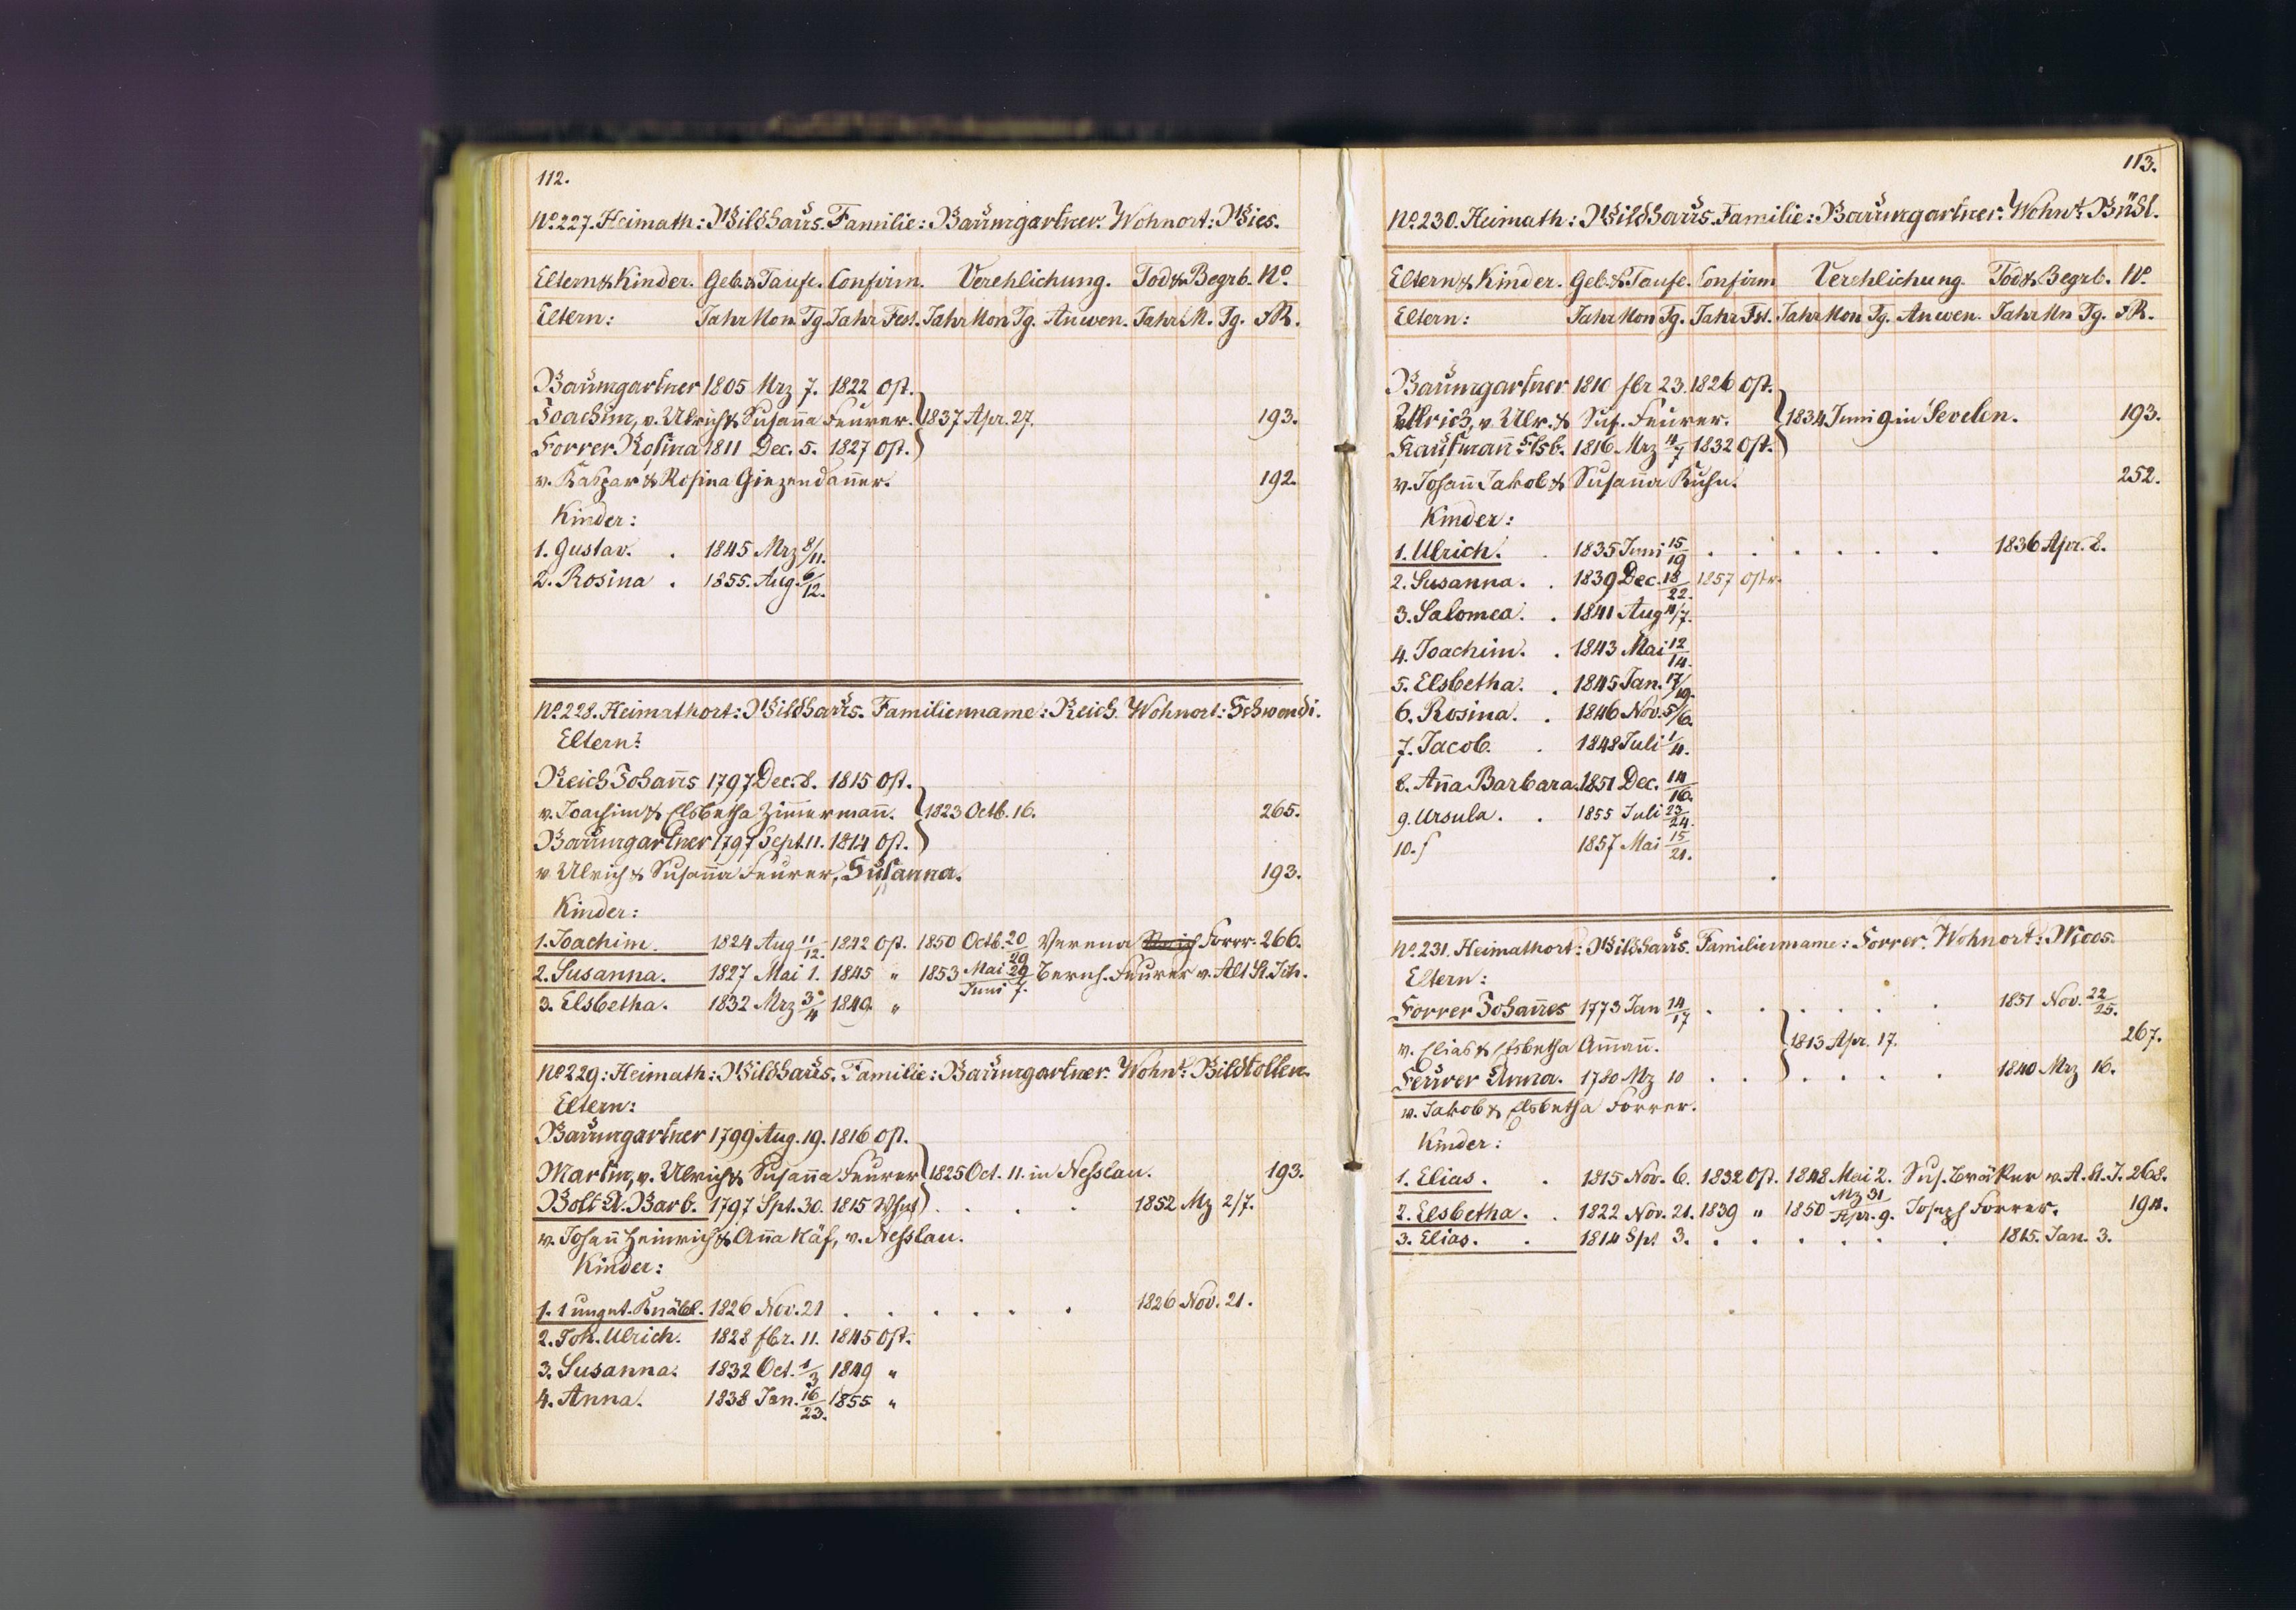 112.
No. 227. Heimath: Wildhaus. Familie: Baumgartner. Wohnort: Wies.
Eltern & Kinder. Geb. & Taufe. Confirm. Verehlichung. Tod & Begrb. No.
Eltern: Jahr Mon. Tg. Jahr Fest. Jahr Mon Tg. Anwen. Jahr M. Tg. FR.
Baumgartner 1805 Mrz 7. 1822 Ost.
Joachim, v. Ulrich & Susanna Feurer. 1837 Apr. 27. 193.
Forrer Rosina 1811 Dec. 5. 1827 Ost.
v. Kaspar & Rosina Giezendanner. 192.
Kinder:
1. Gustav. . 1845 Mrz 8/11.
2. Rosina . 1855. Aug. 6/12.
No. 228. Heimathort: Wildhaus. Familienname: Reich. Wohnort: Schwendi.
Eltern:
Reich Johans 1797 Dec. 8. 1815 Ost.
v. Joachim & Elsbetha Zimmermann. 1823 Octb. 16. 265.
Baumgartner 1797 Sept. 11. 1814 Ost.
v. Ulrich & Susanna Feurer, Susanna. 193.
Kinder:
1. Joachim. 1824 Aug 11/12. 1842 Ost. 1850 Octb. 20/29 Verena Forrer. 266.
2. Susanna. 1827 Mai 1. 1845 " 1853 Mai 29 / Juni 7. Bernh. Feurer v. Alt St. Joh.
3. Elsbetha. 1832 Mrz 3/4 1849. "
No. 229: Heimath: Wildhaus. Familie: Baumgartner. Wohnt: Bildstollen.
Eltern:
Baumgartner 1799 Aug. 19. 1816 Ost.
Martin, v. Ulrich & Susanna Feurer 1825 Oct. 11. in Nesslau. 193.
Bolt A. Barb. 1797 Spt. 30. 1815 . . . . 1852 Mz 2/7.
v. Johann Heinrich & Anna Näf, v. Nesslau.
Kinder:
1. 1 unget. Knäbl. 1826 Nov. 21 . . . . . . 1826 Nov. 21.
2. Joh. Ulrich. 1828 fbr. 11. 1845 Ost.
3. Susanna. 1832 Oct. 1/3 1849 "
4. Anna. 1838 Jan. 16/23. 1855 "
113.
No. 230. Heimath: Wildhaus. Familie: Baumgartner. Wohnt. Bühl.
Eltern & Kinder. Geb. & Taufe. Confirm Verehlichung. Tod & Begrb. No.
Eltern: Jahr Mon Tg. Jahr Fst. Jahr Mon Tg. Anwen. Jahr Mn Tg. FR.
Baumgartner 1810 fbr 23. 1826 Ost.
Ulrich, v. Ulr. & Sus. Feurer. 1834 Juni 9 in Sevelen. 193.
Kaufmann Elsb. 1816 Mrz 4/7 1832 Ost.
v. Johann Jakob & Susanna Kuhn. 252.
Kinder:
1. Ulrich. . 1835 Juni 15/19 . . . . . . 1836 Apr. 8.
2. Susanna. . 1839 Dec. 18/22. 1857 Ostr.
3. Salomea. . 1841 Aug 4/7.
4. Joachim. . 1843 Mai 12/14.
5. Elsbetha. . 1845 Jan. 17/19.
6. Rosina. . 1846 Nov. 5/6.
7. Jacob. . 1848 Juli 1/4.
8. Anna Barbara. 1851 Dec. 14/16.
9. Ursula. . 1855 Juli 23/24.
10. 1857 Mai 15/21.
No. 231. Heimathort: Wildhaus. Familienname: Forrer. Wohnort: Moos.
Eltern:
Forrer Johannes 1773 Jan 14/17 . . . . . . 1851 Nov. 22/25.
v. Elias & Elsbetha Ammann. 1813 Apr. 17. 267.
Feurer Anna. 1780 Mz 10 . . . . . . 1840 Mrz 16.
v. Jakob & Elsbetha Forrer.
Kinder:
1. Elias. . 1815 Nov. 6. 1832 Ost. 1848 Mai 2. Sus. Bräker v. A. St. J. 268.
2. Elsbetha. . 1822 Nov. 21. 1839 " 1850 Mz 31 / Apr. 9. Joseph Forrer. 194.
3. Elias. . 1814 Spt 3. . . . . . . 1815. Jan. 3.